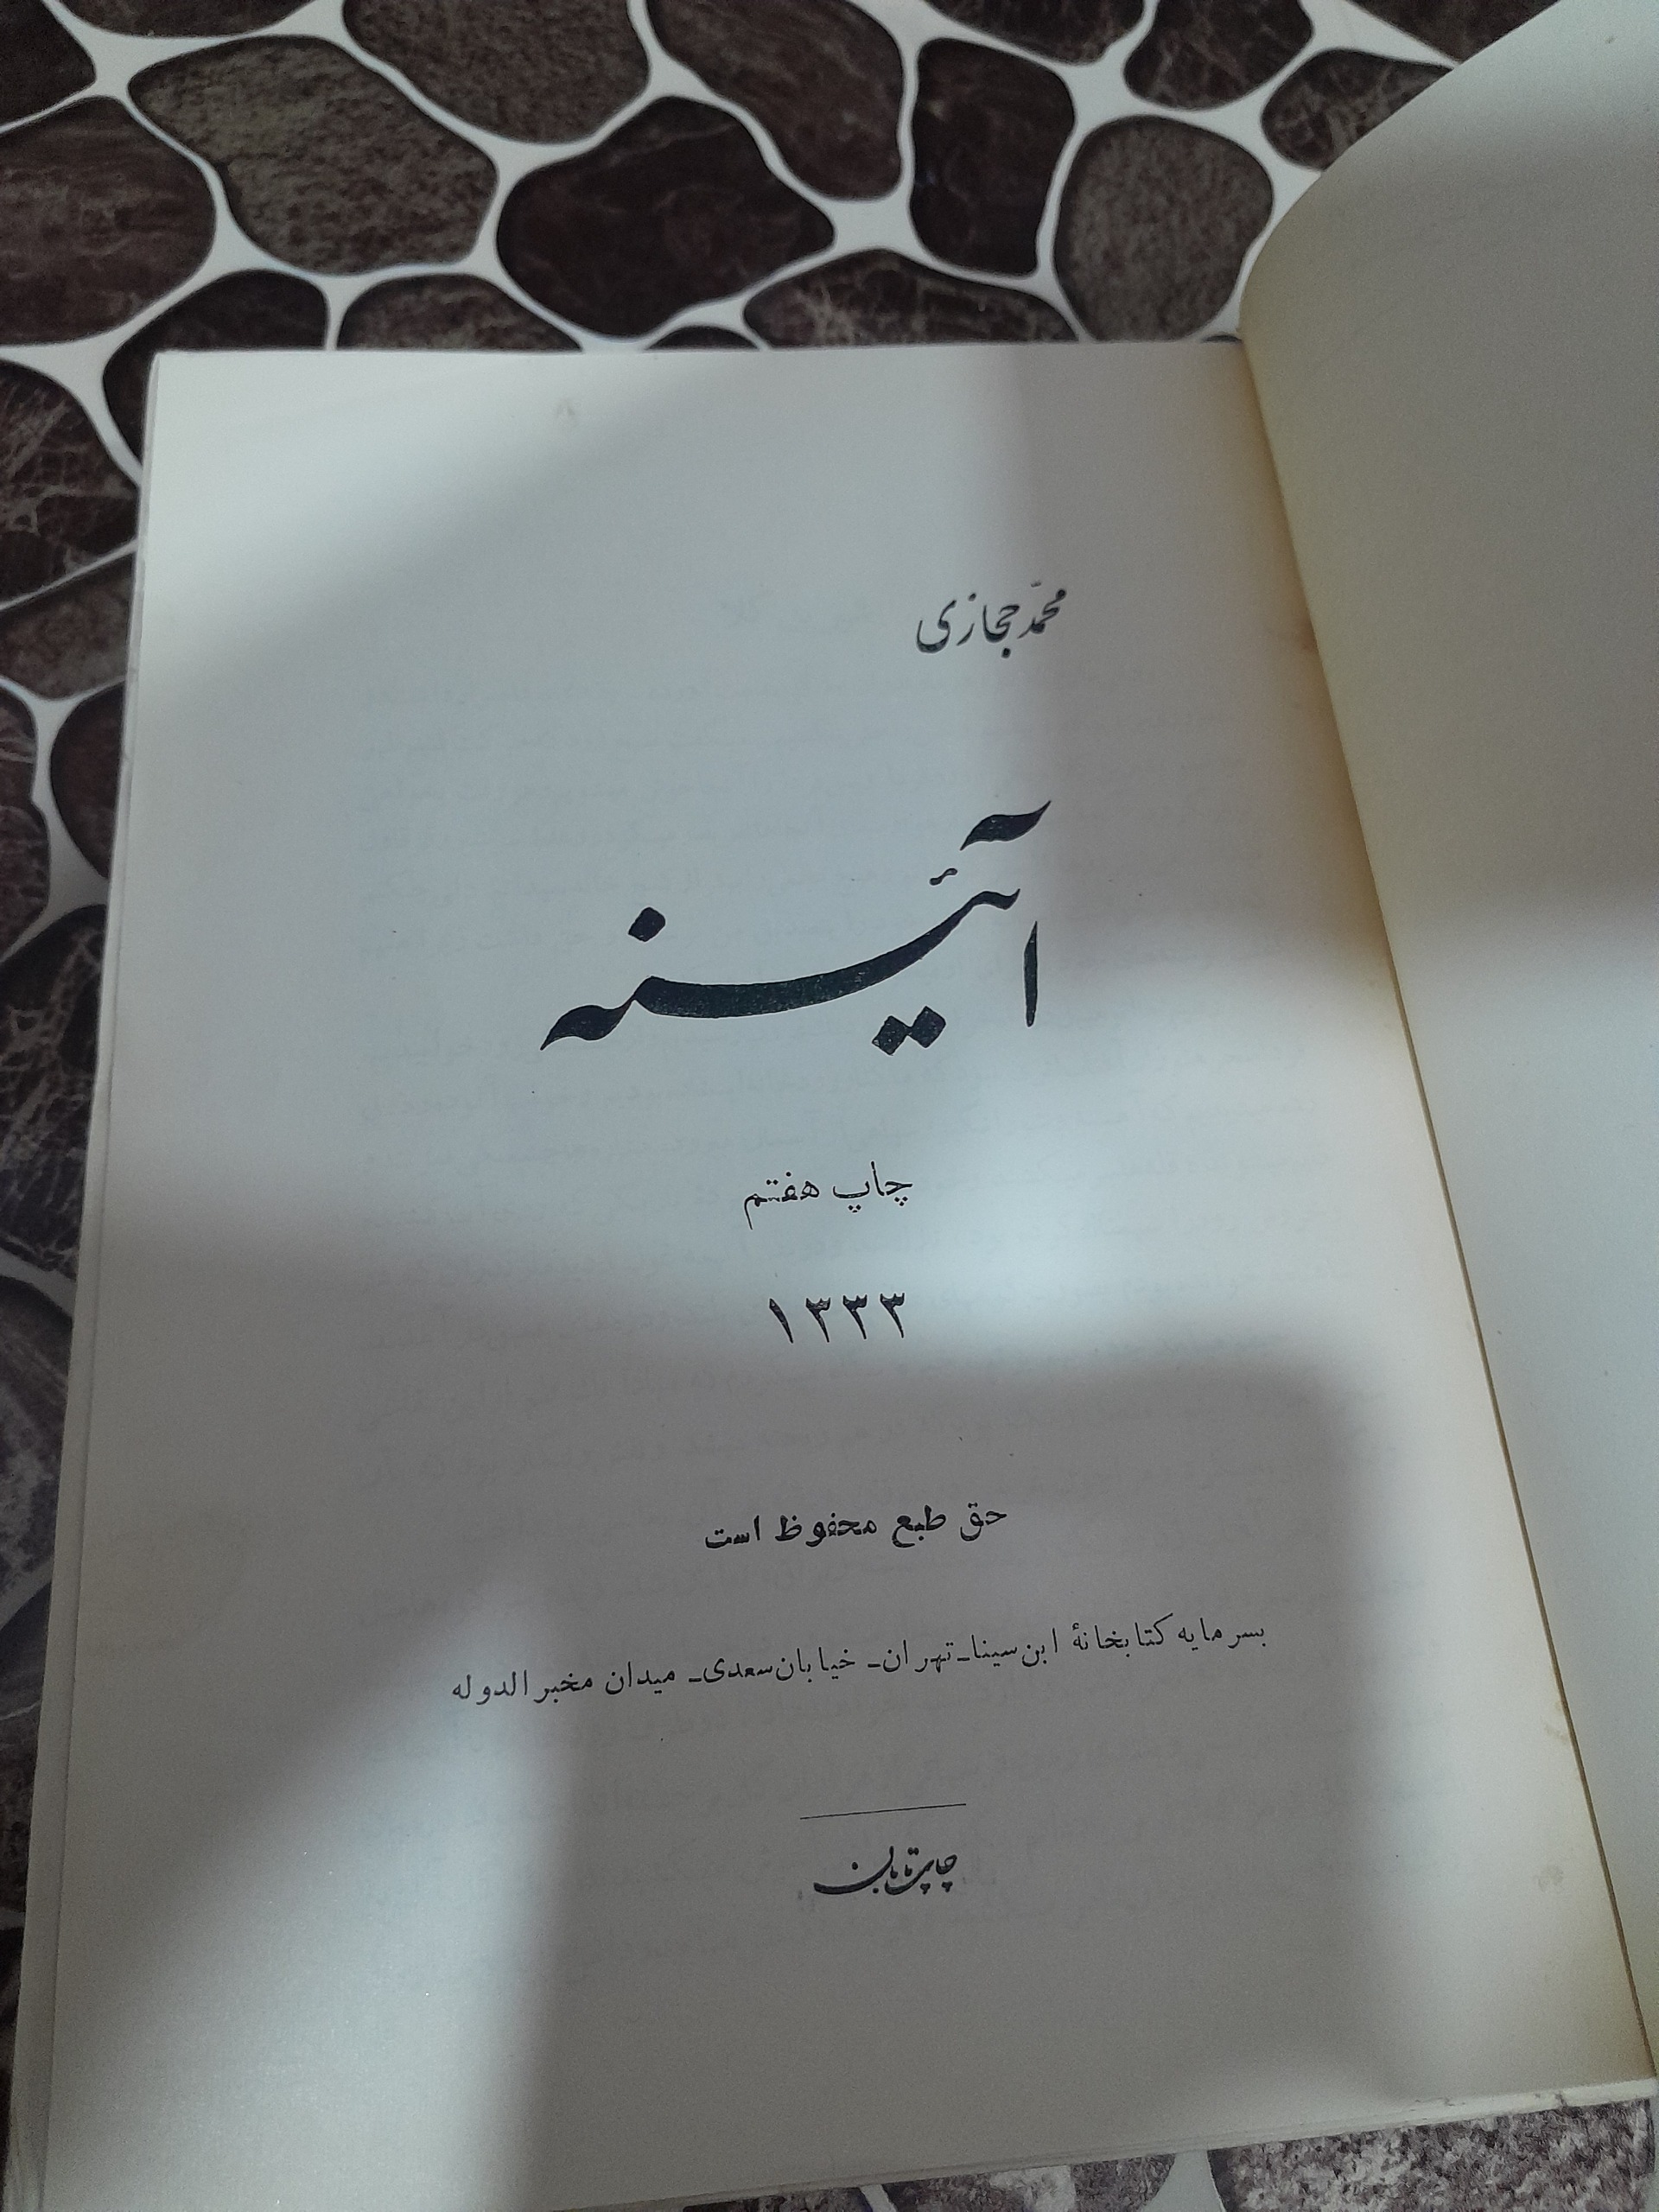 محمّد حجازی
آئینه
چاپ هفتم
۱۳۳۳
حق طبع محفوظ است
بسرمایه کتابخانهٔ ابن‌سینا ـ تهران ـ خیابان سعدی ـ میدان مخبرالدوله
چاپ تابان